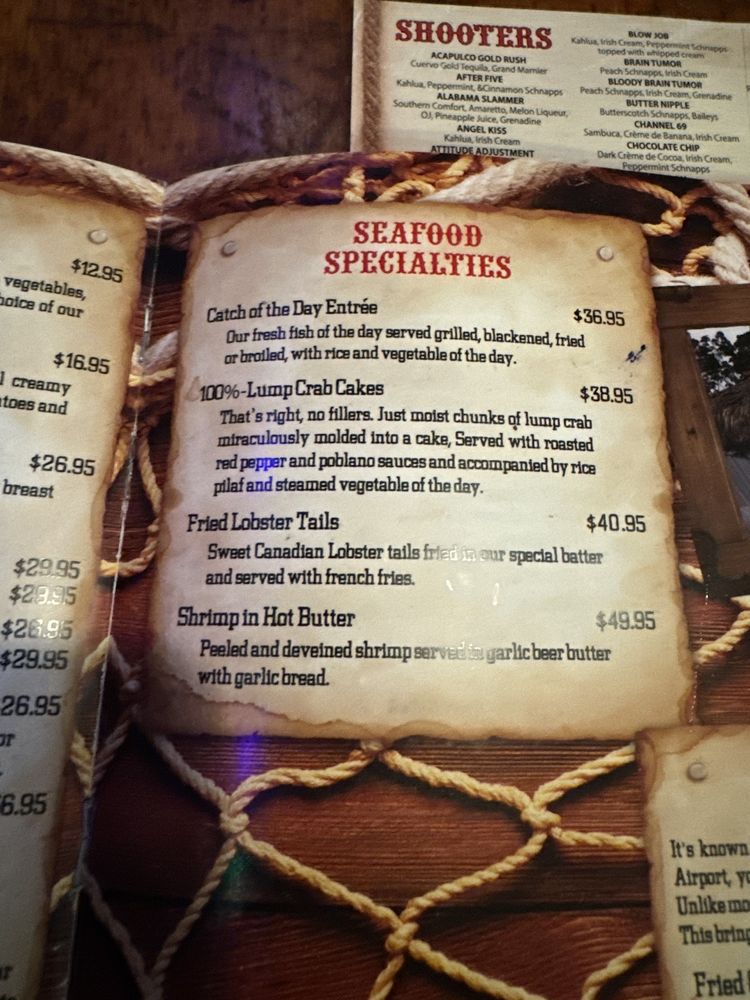 SHOOTERS
ACAPULCO GOLD RUSH
Cuervo Gold Tequila, Grand Marnier
AFTER FIVE
Kahlua, Peppermint, &Cinnamon Schnapps
ALABAMA SLAMMER
Southern Comfort, Amaretto, Melon Liqueur,
OJ, Pineapple Juice, Grenadine
ANGEL KISS
Kahlua, Irish Cream
ATTITUDE ADJUSTMENT
BLOW JOB
Kahlua, Irish Cream, Peppermint Schnapps
topped with whipped cream
BRAIN TUMOR
Peach Schnapps, Irish Cream
BLOODY BRAIN TUMOR
Peach Schnapps, Irish Cream, Grenadine
BUTTER NIPPLE
Butterscotch Schnapps, Baileys
CHANNEL 69
Sambuca, Crème de Banana, Irish Cream
CHOCOLATE CHIP
Dark Crème de Cocoa, Irish Cream,
Peppermint Schnapps
$12.95
vegetables,
hoice of our
$16.95
creamy
toes and
$26.95
breast
$29.95
$29.95
$26.95
$29.95
26.95
or
6.95
SEAFOOD
SPECIALTIES
Catch of the Day Entrée $36.95
Our fresh fish of the day served grilled, blackened, fried
or broiled, with rice and vegetable of the day.
100%-Lump Crab Cakes $38.95
That's right, no fillers. Just moist chunks of lump crab
miraculously molded into a cake, Served with roasted
red pepper and poblano sauces and accompanied by rice
pilaf and steamed vegetable of the day.
Fried Lobster Tails $40.95
Sweet Canadian Lobster tails fried in our special batter
and served with french fries.
Shrimp in Hot Butter $49.95
Peeled and deveined shrimp served in garlic beer butter
with garlic bread.
It's known
Airport, yo
Unlike mo
This bring
Fried